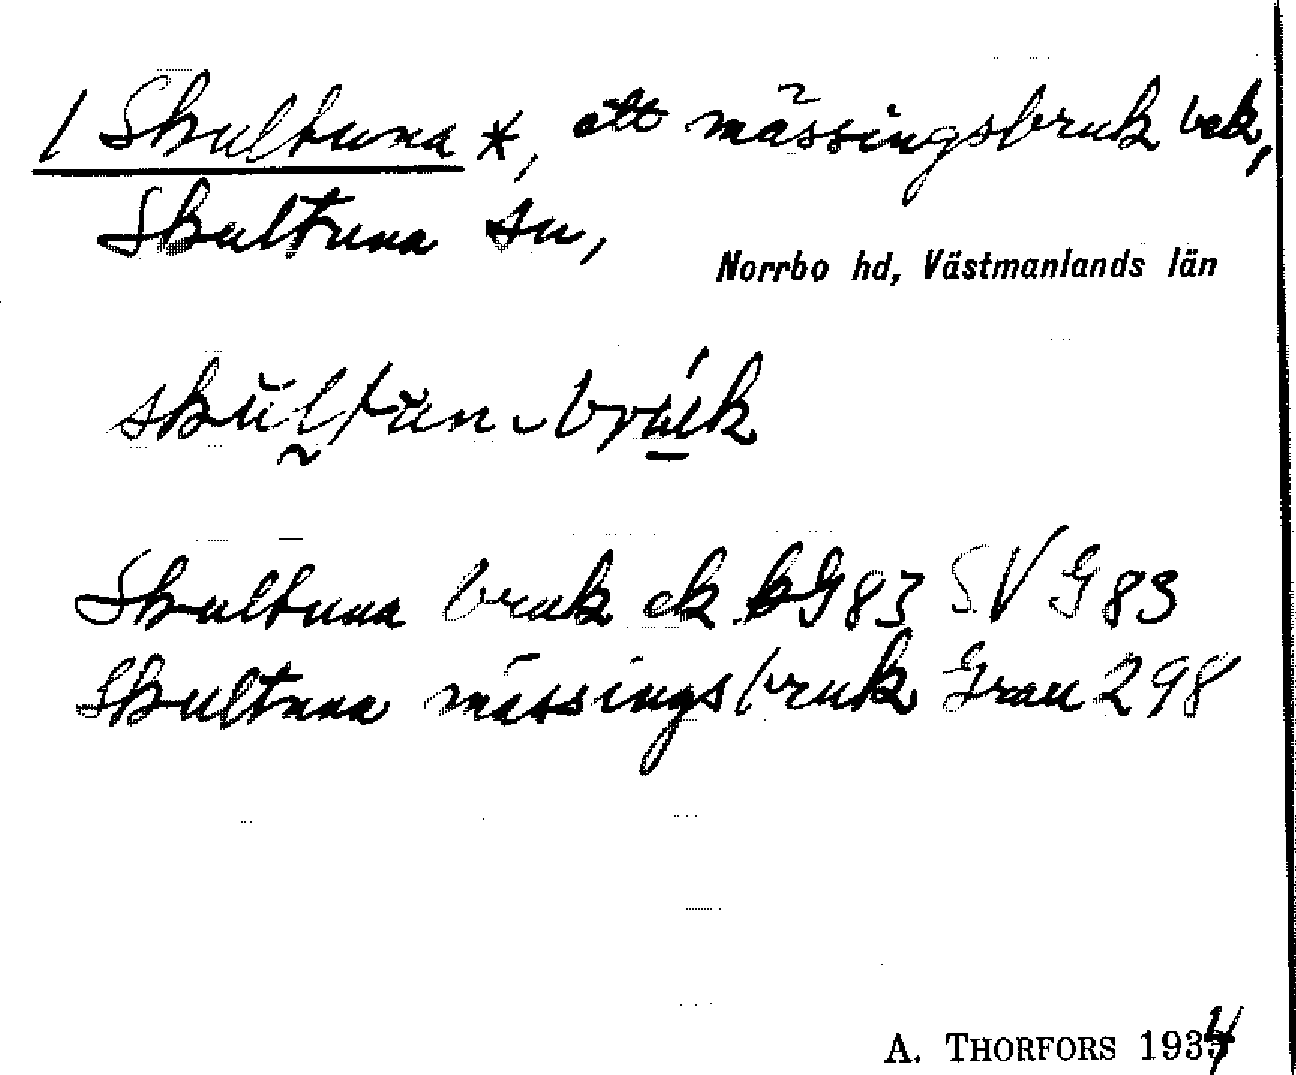 1 Skultuna *, ett mässingsbruk bek,
Skultuna sn,
Norrbo hd, Västmanlands län
skŭltŭn-brúk
Skultuna bruk ek G83 SV G 83
Skultuna mässingsbruk Grau 298
A. THORFORS 1934